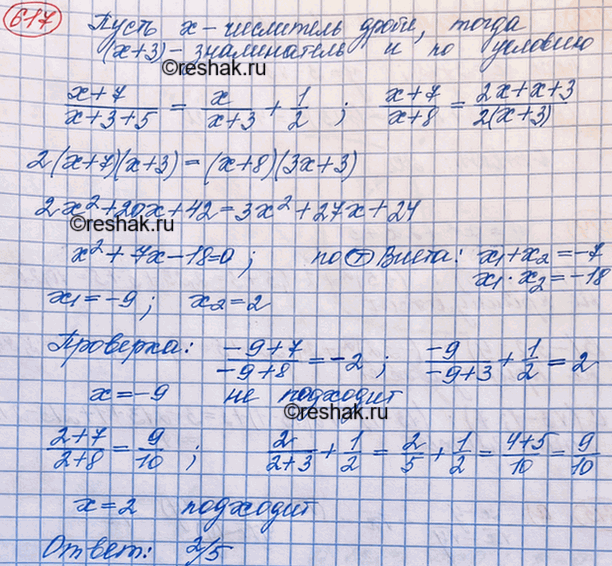 617
Пусть x - числитель дроби, тогда
(x+3) - знаминатель и по условию
©reshak.ru
(x+7)/(x+3+5) = x/(x+3) + 1/2 ; (x+7)/(x+8) = (2x+x+3)/(2(x+3))
2(x+7)(x+3) = (x+8)(3x+3)
2x²+20x+42=3x²+27x+24
©reshak.ru
x²+7x-18=0; по Т Виета: x₁+x₂=-7
x₁·x₂=-18
x₁=-9; x₂=2
Проверка: (-9+7)/(-9+8) = -2 ; -9/(-9+3) + 1/2 = 2
x=-9 не подходит
©reshak.ru
(2+7)/(2+8) = 9/10 ; 2/(2+3) + 1/2 = 2/5 + 1/2 = (4+5)/10 = 9/10
x=2 подходит
Ответ: 2/5